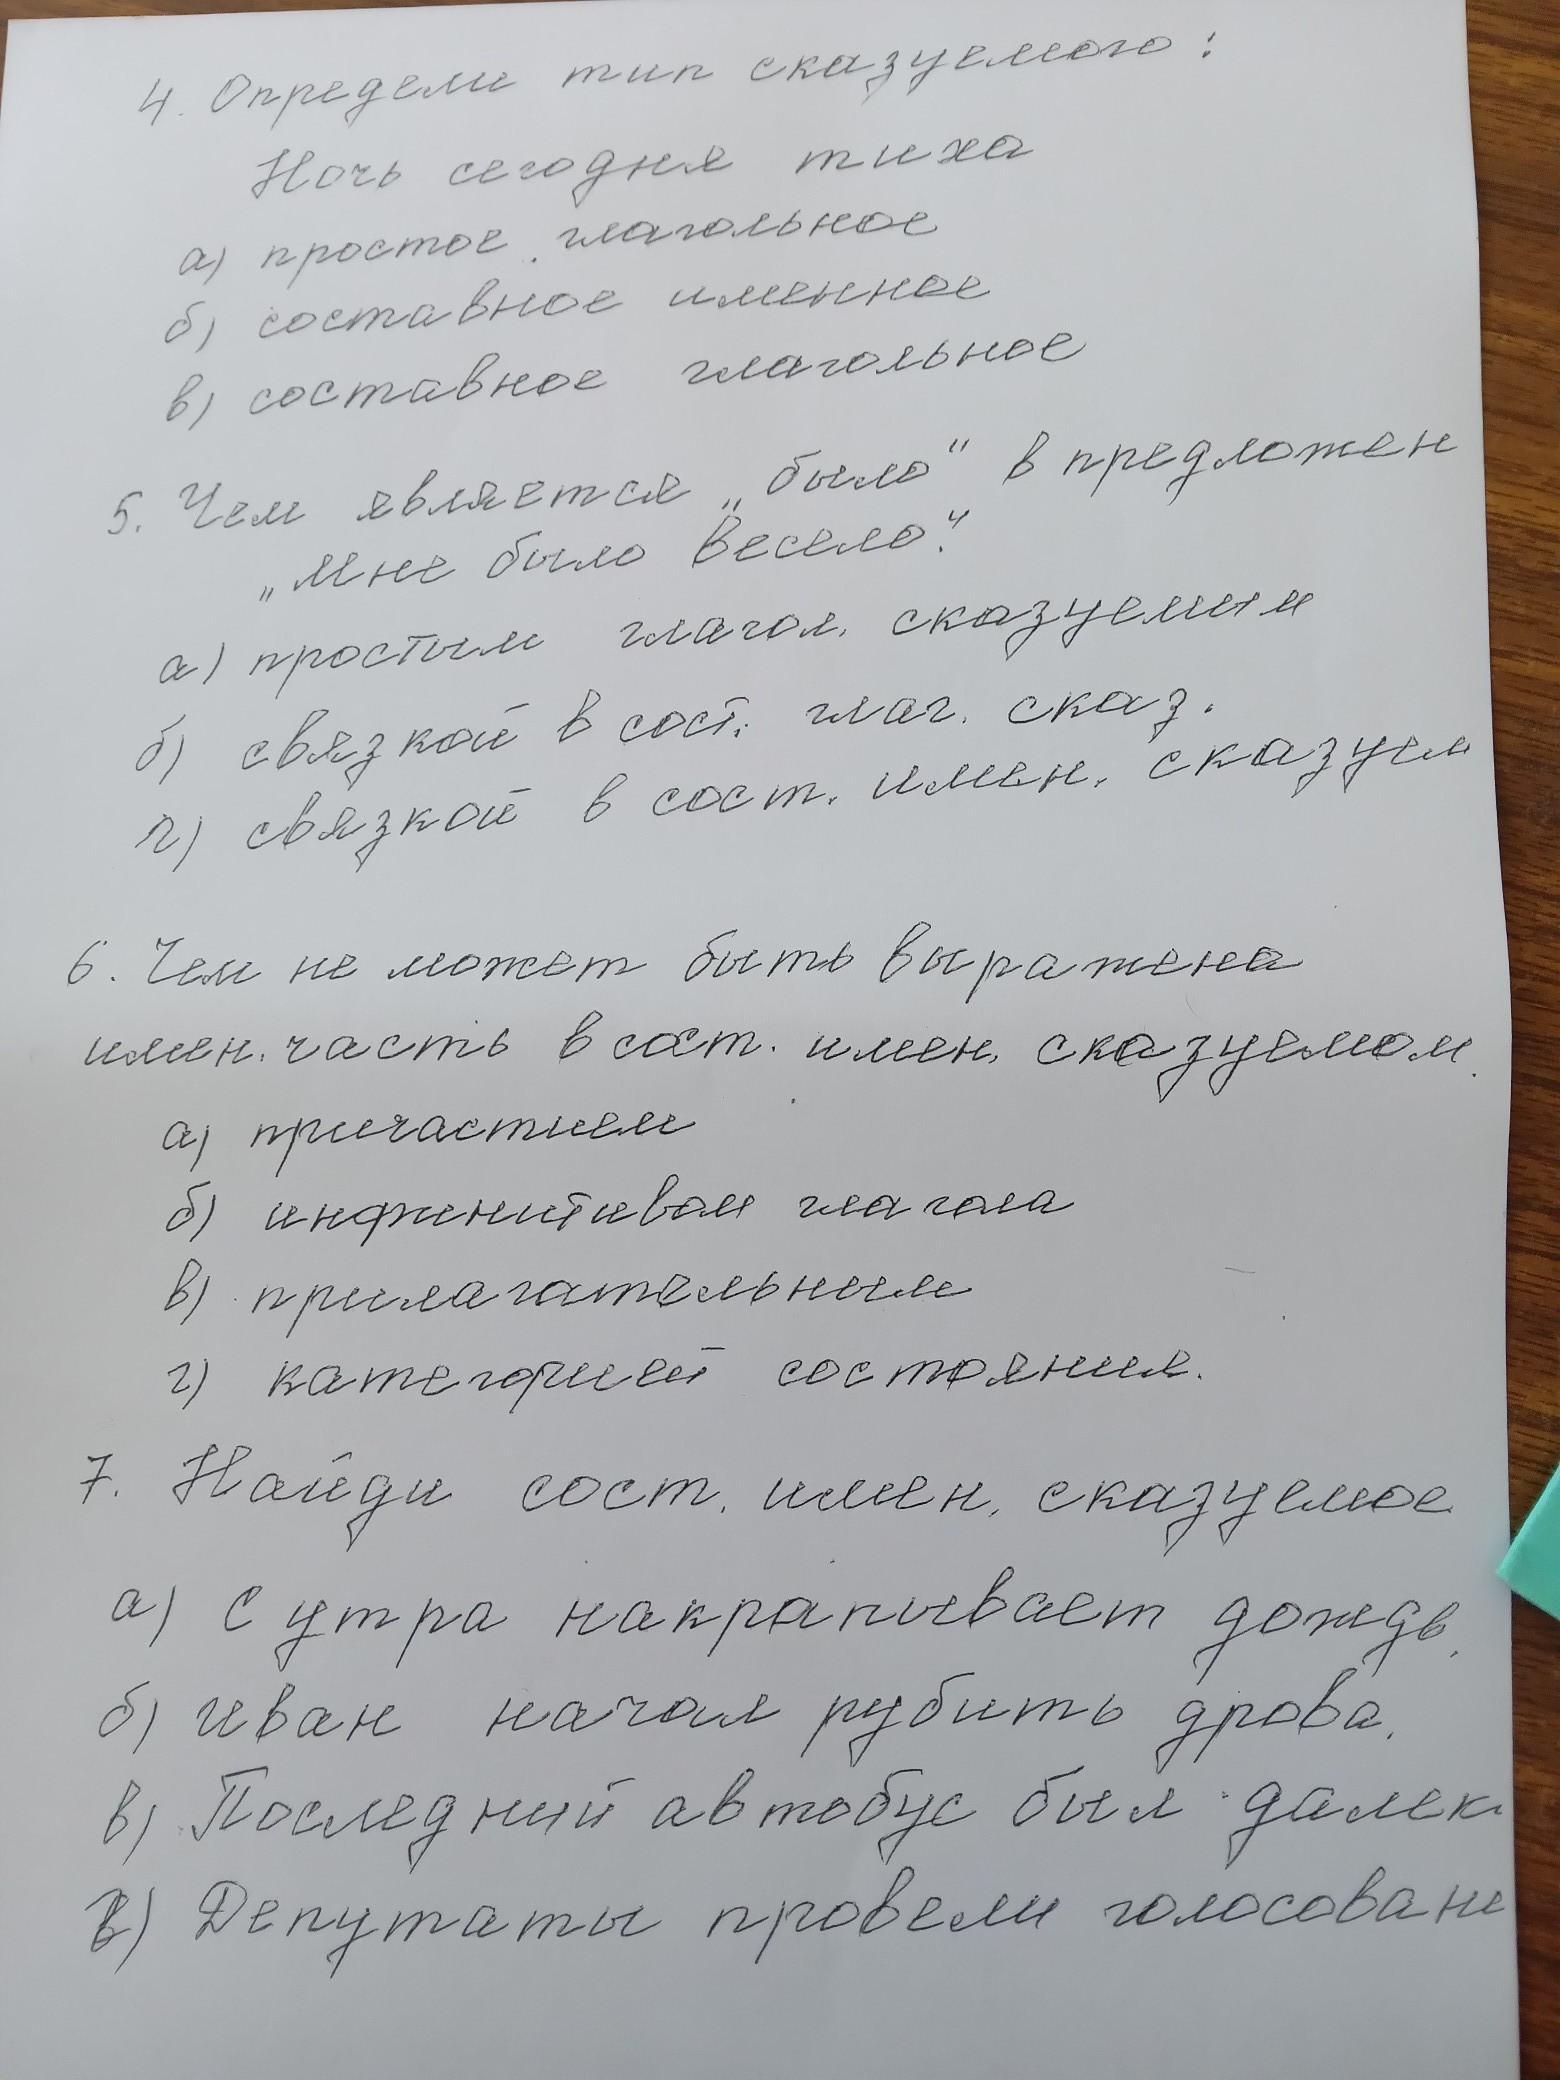 4. Определи тип сказуемого:
Ночь сегодня тиха
а) простое глагольное
б) составное именное
в) составное глагольное
5. Чем является „было" в предложен
„Мне было весело".
а) простым глагол. сказуемым
б) связкой в сост. глаг. сказ.
г) связкой в сост. имен. сказуем
6. Чем не может быть выражена
имен. часть в сост. имен. сказуемом.
а) причастием
б) инфинитивом глагола
в) прилагательным
г) категорией состояния.
7. Найди сост. имен. сказуемое
а) С утра накрапывает дождь.
б) Иван начал рубить дрова.
в) Последний автобус был далек
в) Депутаты провели голосован